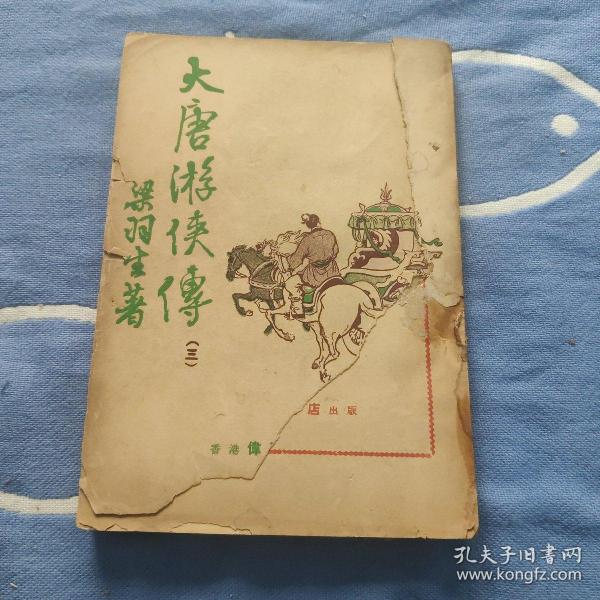 大唐游俠傳
(三)
梁羽生著
店出版
香港偉
孔夫子旧書网
www.kongfz.com